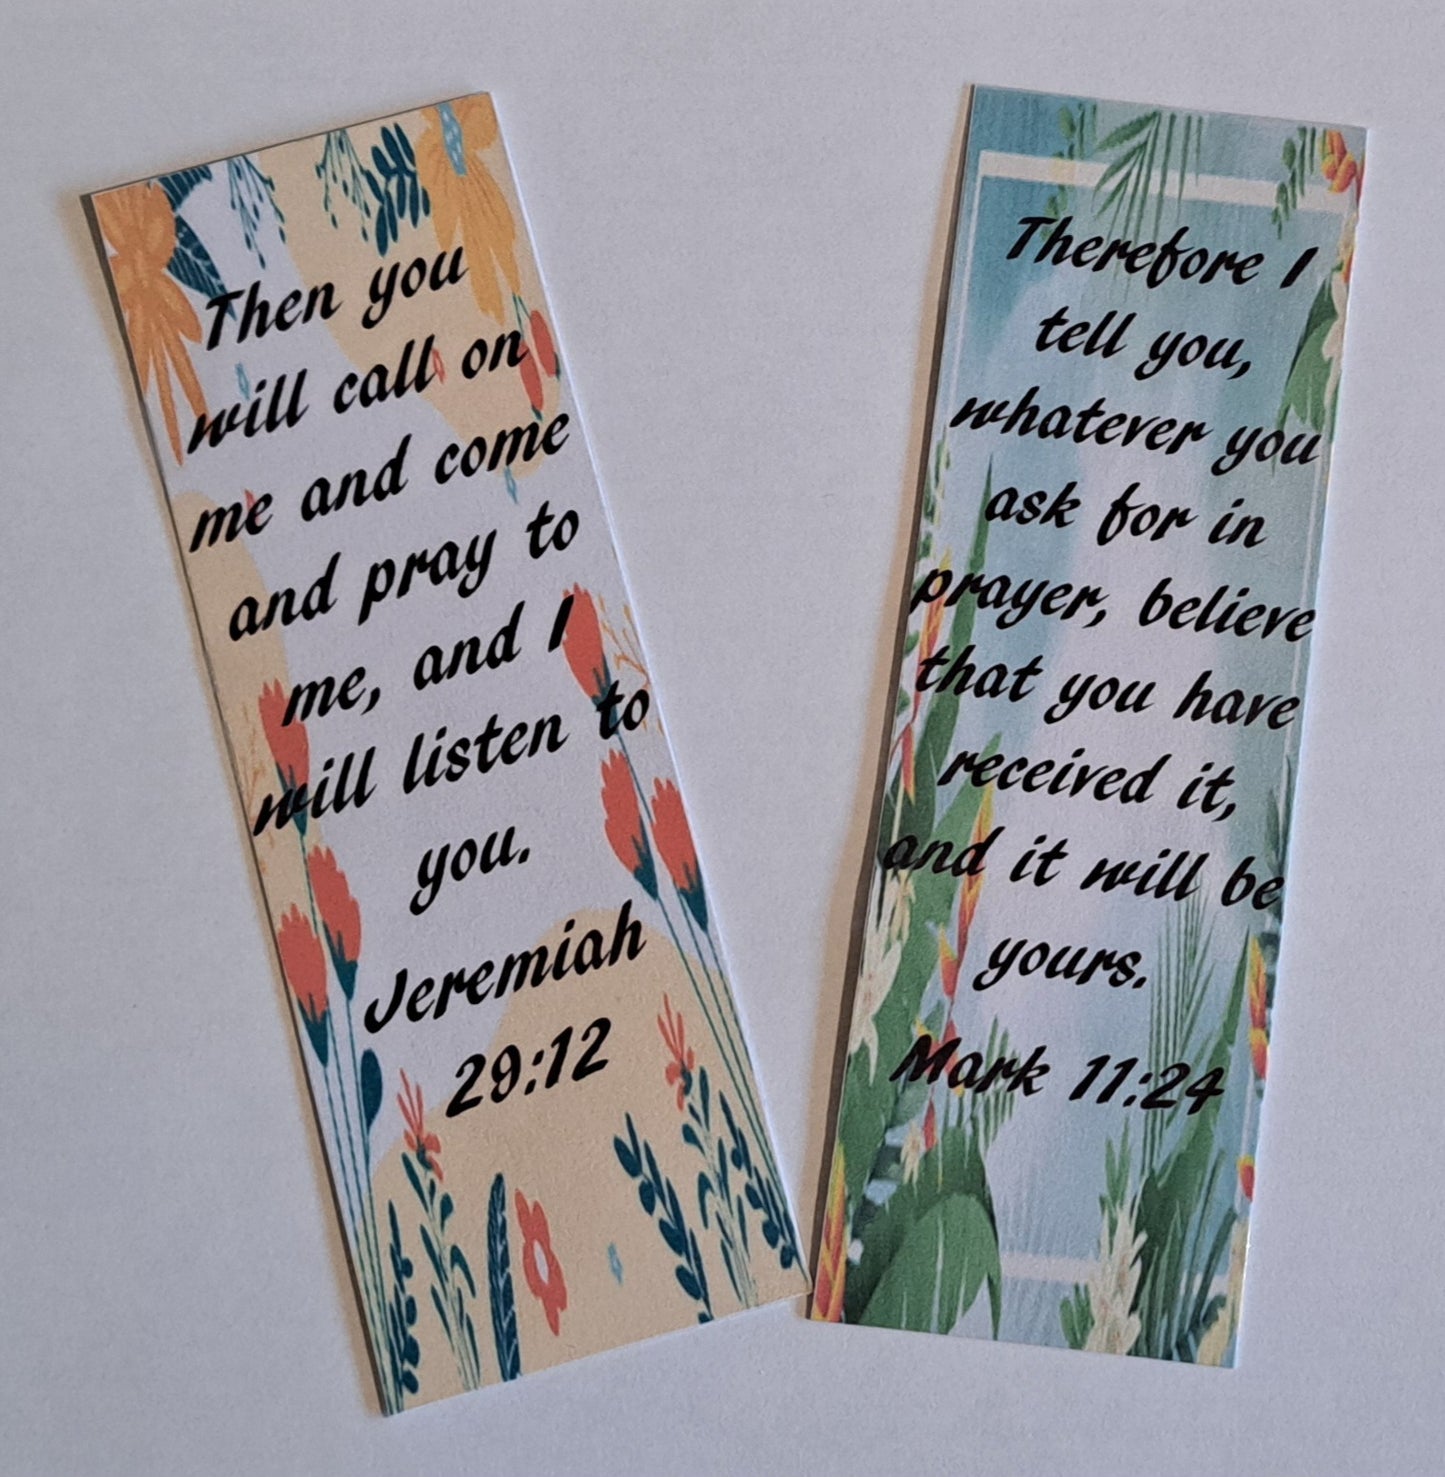 Then you
will call on
me and come
and pray to
me, and I
will listen to
you.
Jeremiah
29:12
Therefore I
tell you,
whatever you
ask for in
prayer, believe
that you have
received it,
and it will be
yours.
Mark 11:24